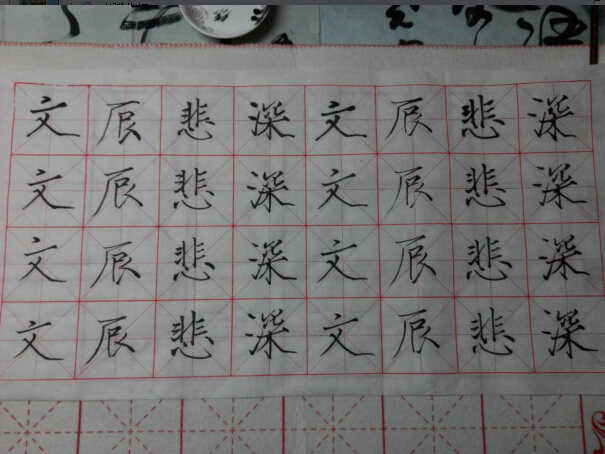 文辰悲深文辰悲深
文辰悲深文辰悲深
文辰悲深文辰悲深
文辰悲深文辰悲深